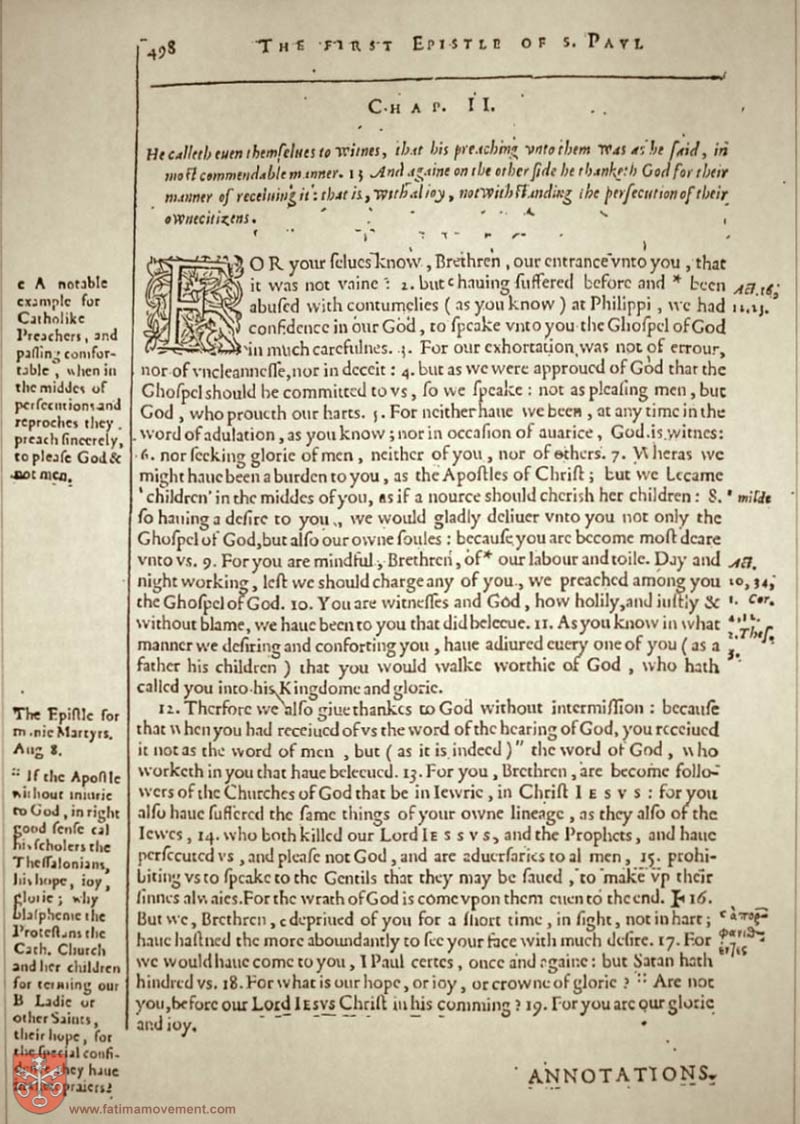 498
THE FIRST EPISTLE OF S. PAVL
CHAP. II.
He calleth euen themſelues to witnes, that his preaching vnto them was as he ſaid, in
moſt commendable manner. 13 And againe on the other ſide he thanketh God for their
manner of receiuing it: that is, with al ioy, notwithſtanding the perſecution of their
owne citizens.
FOR your ſelues know, Brethren, our entrance vnto you, that
it was not vaine: 2. but c hauing ſuffered before and * been
abuſed with contumelies (as you know) at Philippi, we had
confidence in our God, to ſpeake vnto you the Ghoſpel of God
in much carefulnes. 3. For our exhortation was not of errour,
nor of vncleanneſſe, nor in deceit: 4. but as we were approued of God that the
Ghoſpel should be committed to vs, ſo we ſpeake: not as pleaſing men, but
God, who proueth our harts. 5. For neither haue we been, at any time in the
word of adulation, as you know; nor in occaſion of auarice, God is witnes:
6. nor ſeeking glorie of men, neither of you, nor of others. 7. Wheras we
might haue been a burden to you, as the Apoſtles of Chriſt; but we became
'children' in the middes of you, as if a nource should cherish her children: 8.
ſo hauing a deſire to you, we would gladly deliuer vnto you not only the
Ghoſpel of God, but alſo our owne ſoules: becauſe you are become moſt deare
vnto vs. 9. For you are mindful, Brethren, of * our labour and toile. Day and
night working, leſt we should charge any of you, we preached among you
the Ghoſpel of God. 10. You are witneſſes and God, how holily, and iuſtly &
without blame, we haue been to you that did beleeue. 11. As you know in what
manner we deſiring and conforting you, haue adiured euery one of you (as a
father his children) that you would walke worthie of God, who hath
called you into his Kingdome and glorie.
12. Therfore we alſo giue thankes to God without intermiſſion: becauſe
that when you had receiued of vs the word of the hearing of God, you receiued
it not as the word of men, but (as it is indeed) " the word of God, who
worketh in you that haue beleeued. 13. For you, Brethren, are become follo-
wers of the Churches of God that be in Iewrie, in Chriſt IESVS: for you
alſo haue ſuffered the ſame things of your owne lineage, as they alſo of the
Iewes, 14. who both killed our Lord IESSVS, and the Prophets, and haue
perſecuted vs, and pleaſe not God, and are aduerſaries to al men, 15. prohi-
biting vs to ſpeake to the Gentils that they may be ſaued, to make vp their
ſinnes alwaies. For the wrath of God is come vpon them euen to the end. 16.
But we, Brethren, c depriued of you for a short time, in ſight, not in hart;
haue haſtned the more aboundantly to ſee your face with much deſire. 17. For
we would haue come to you, I Paul certes, once and againe: but Satan hath
hindred vs. 18. For what is our hope, or ioy, or crowne of glorie? :: Are not
you, before our Lord IESVS Chriſt in his comming? 19. For you are our glorie
and ioy.
ANNOTATIONS.
c A notable
example for
Catholike
Preachers, and
paſſing comfor-
table, when in
the middes of
perſecutions and
reproches they
preach ſincerely,
to pleaſe God &
not men.
The Epiſtle for
Martyrs.
Aug 8.
:: If the Apoſtle
without iniurie
to God, in right
good ſenſe cal
his ſcholers the
Theſſalonians,
his hope, ioy,
glorie; why
blaſpheme the
Proteſtans the
Cath. Church
and her children
for terming our
B Ladie or
other Saints,
their hope, for
the ſpecial confi-
dence they haue
in their praiers?
Act. 16,
' milde
Act.
20, 34,
1. Cor.
2. Theſ.
3.
www.fatimamovement.com